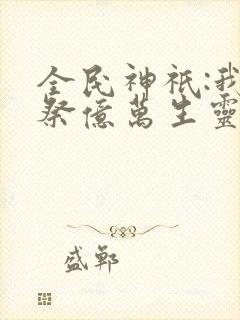 全民神祇:我
祭億萬生靈
盛鄴